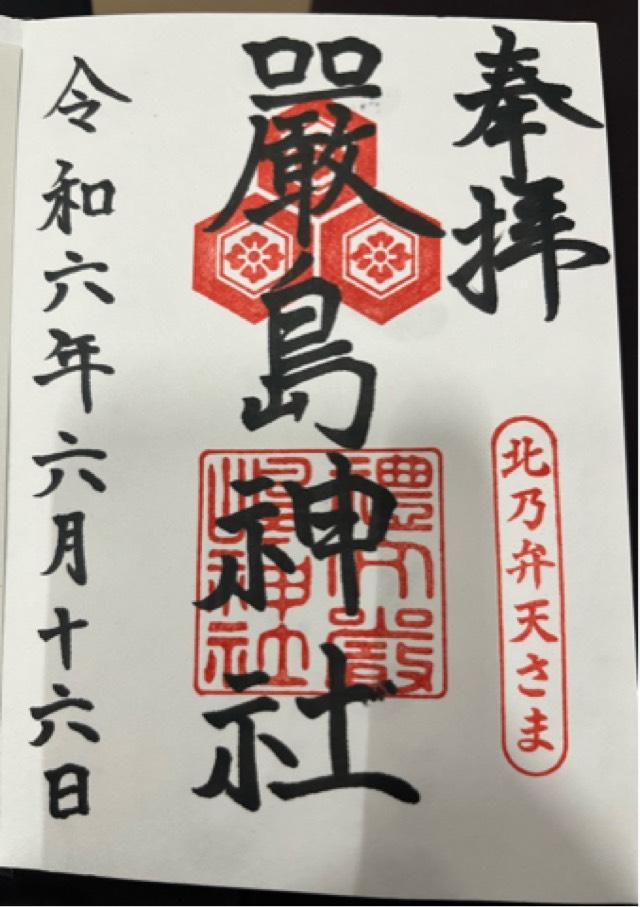 奉拝
北乃弁天さま
嚴島神社
禮文嚴
島神社
令和六年六月十六日